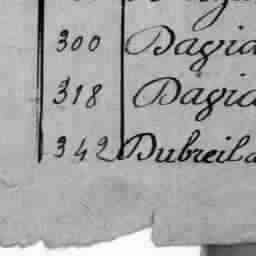 300 Dagia
318 Dagia
342 Dubreil